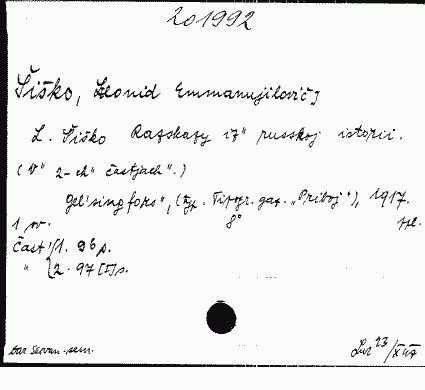 201992
Šiško, Leonid Emmanujilovič]
L. Šiško Razskazy iz" russkoj istorii.
(V" 2-ch" častjach".)
Gel'singfors", (Typ. Tipogr. gaz. „Priboj"), 1917.
1 sv. 8°
Čast' 1. 96 s.
" 2. 97 [I] s.
dar Slovan. sem.
23/X